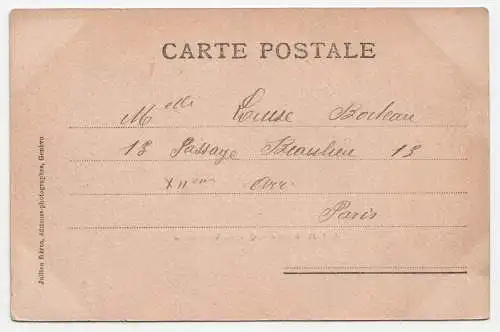 CARTE POSTALE
Melle Louise Boileau
13 Passage Beaulieu 13
XIIeme Arr
Paris
Jullien frères, éditeurs-photographes, Genève